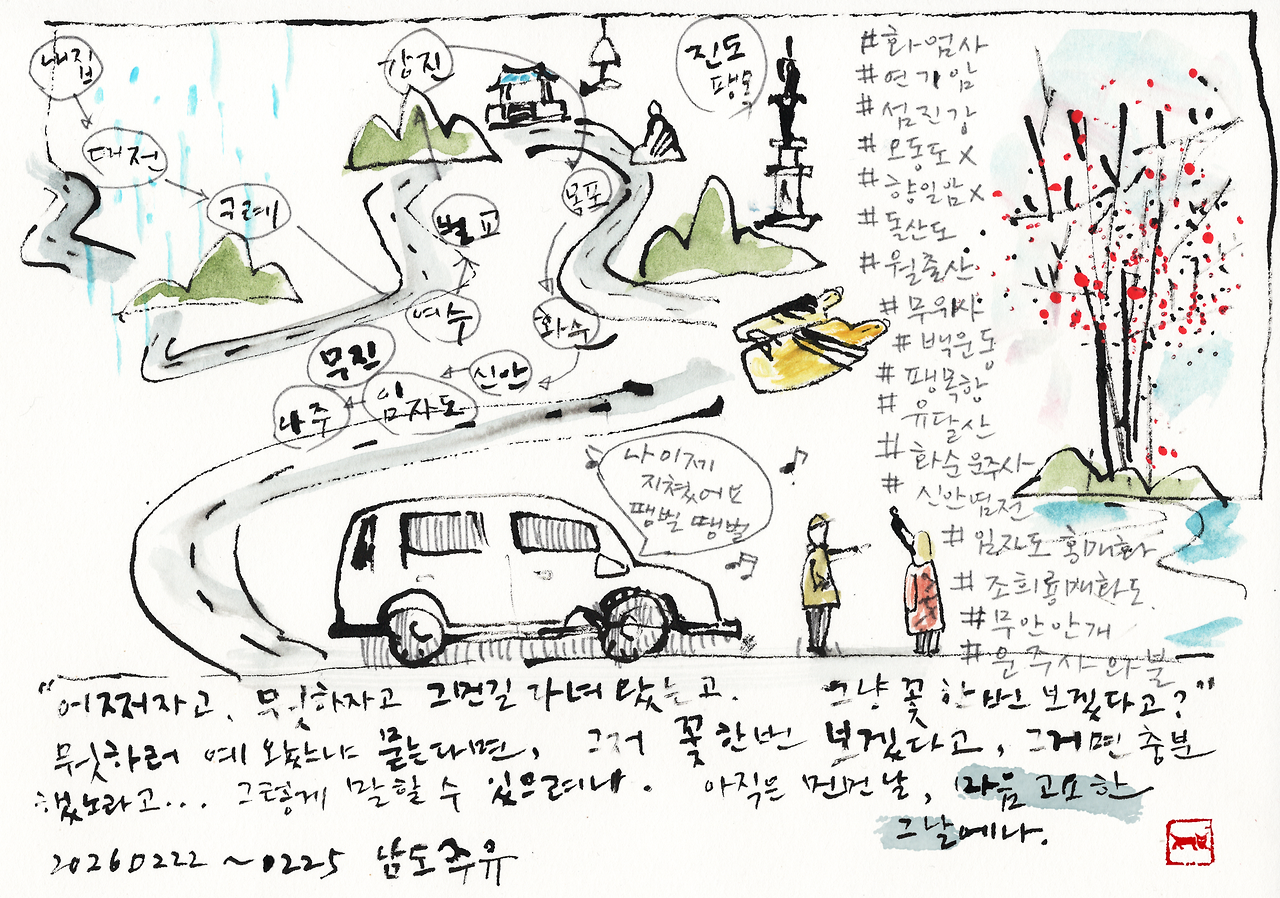 내집
대전
구례
강진
벌교
여수
목포
화수
신안
임자도
무진
나주
진도
팽목
#화엄사
#연기암
#섬진강
#오동도 X
#향일암 X
#돌산도
#월출산
#무위사
#백운동
#팽목항
#유달산
#화순운주사
#신안염전
#임자도 홍매화
#조희룡매화도
#무안안개
#운주사와불
나 이제
지쳤어요
땡벌 땡벌
"어쩌자고, 무엇하자고 그먼길 다녀 왔는고. 그냥 꽃 한번 보겠다고?"
무엇하러 예 왔느냐 묻는다면, 그저 꽃 한번 보겠다고, 그거면 충분
했노라고... 그렇게 말할 수 있으려나. 아직은 먼먼날, 마음 고요한
그날에나.
20260222 ~ 0225 남도주유